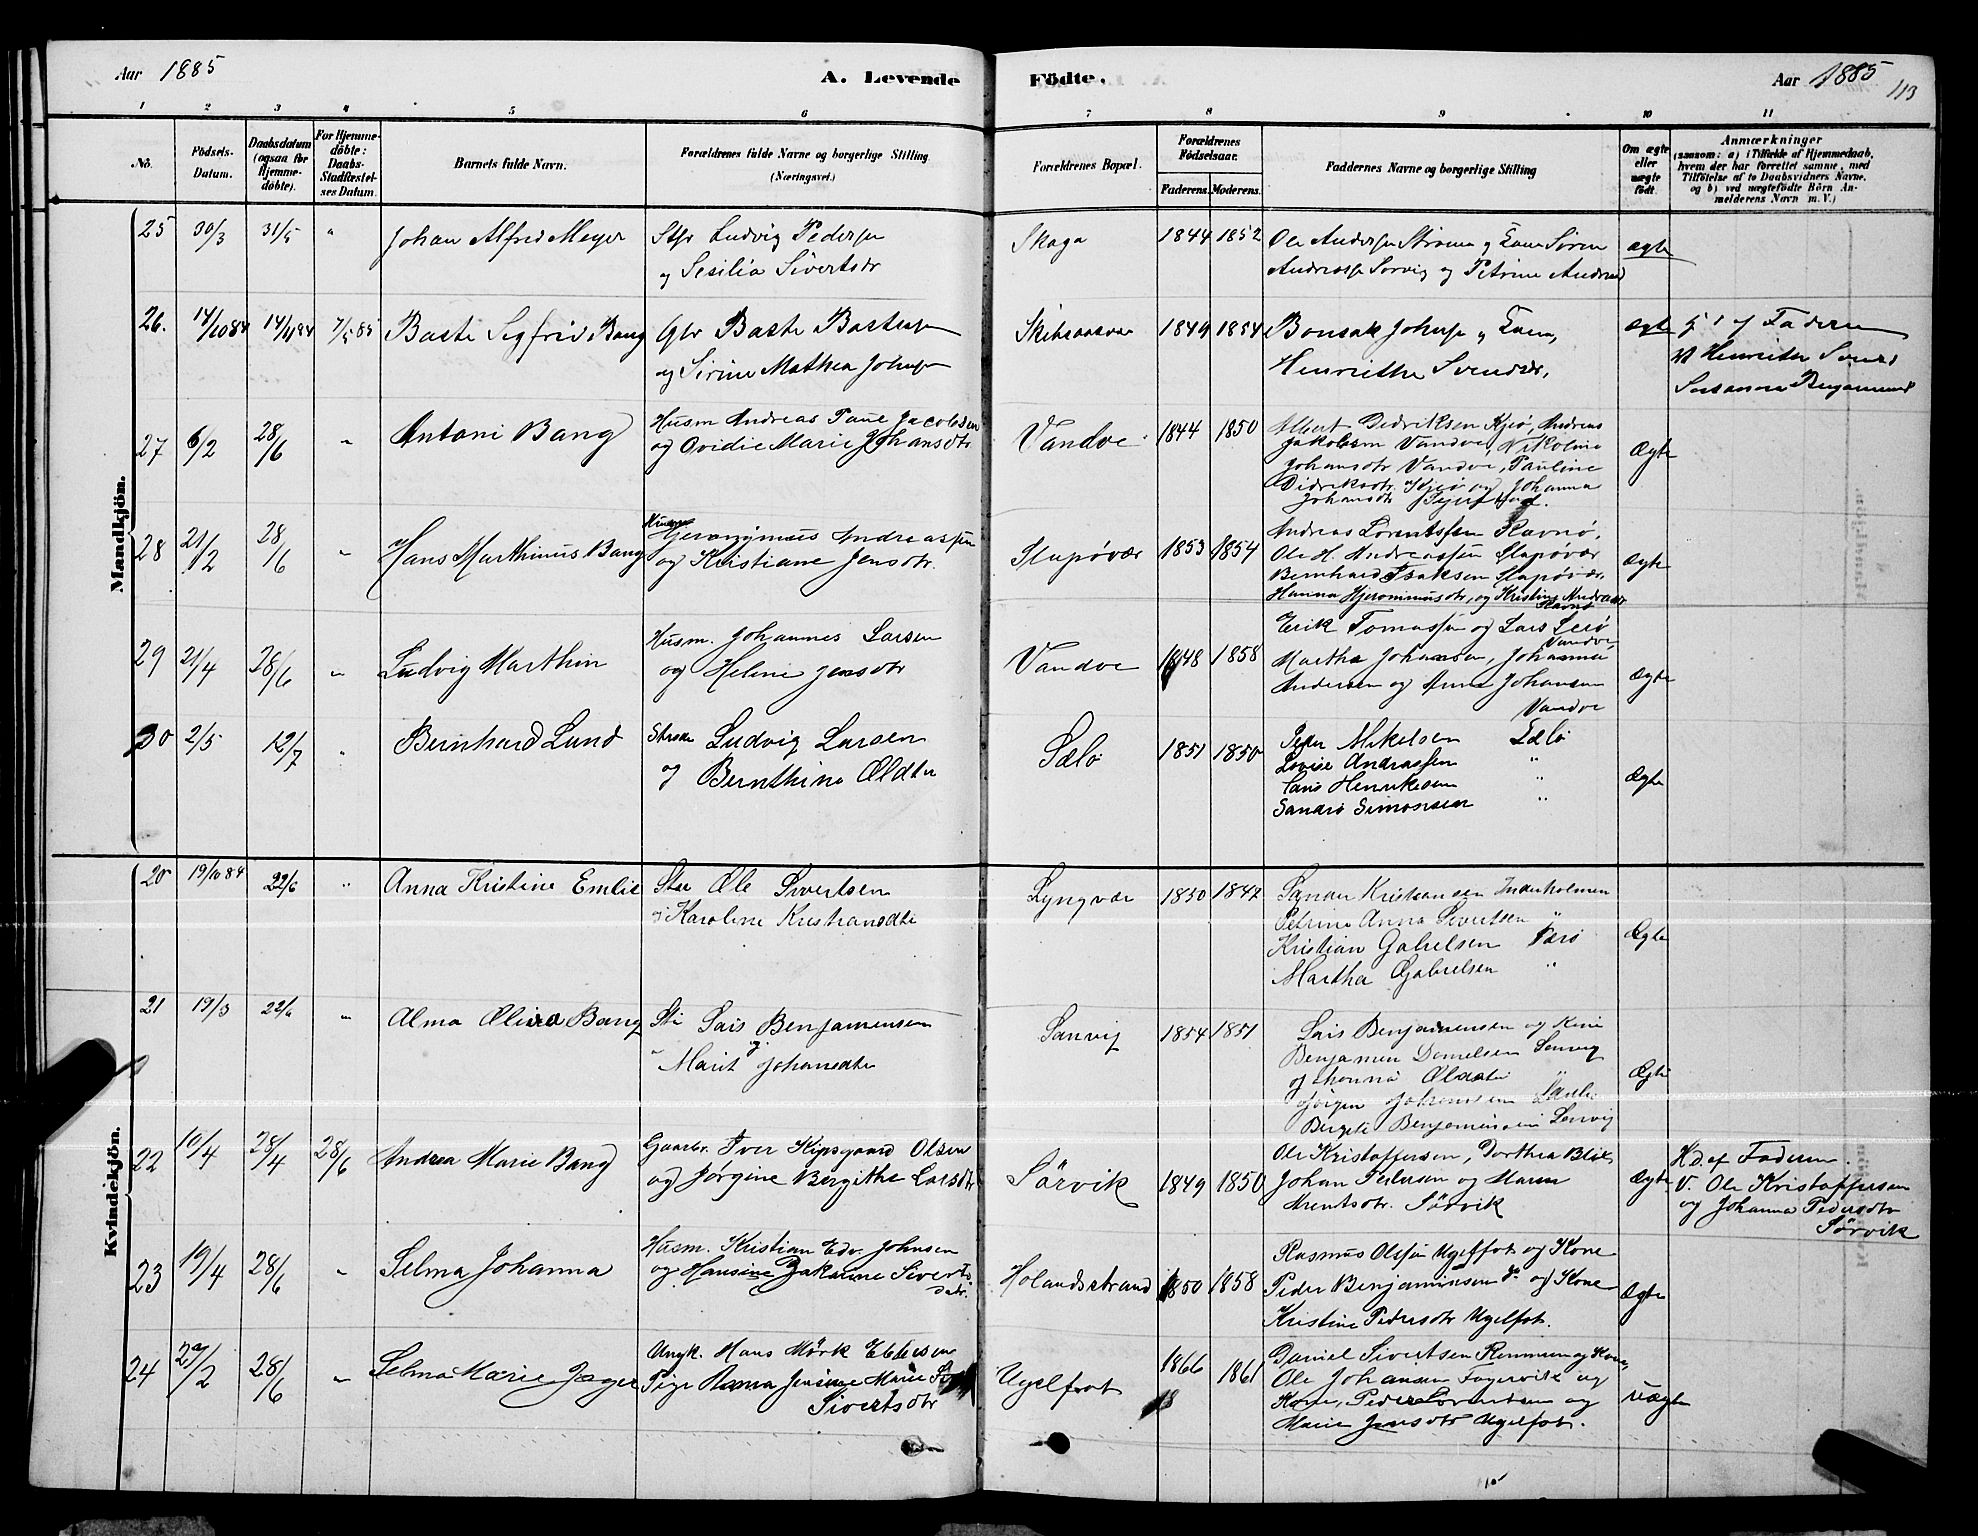 Aar 1885
A. Levende Födte.
Aar 1885
113
1 2 3 4 5 6 7 8 9 10 11
No.
Födsels-
Datum.
Daabsdatum
(ogsaa for
Hjemme-
döbte).
For Hjemme-
döbte:
Daabs-
Stadfæstel-
ses Datum.
Barnets fulde Navn.
Forældrenes fulde Navne og borgerlige Stilling
(Næringsvei.)
Forældrenes Bopæl.
Forældrenes
Födselsaar.
Faderens. Moderens.
Faddernes Navne og borgerlige Stilling
Om ægte
eller
uægte
födt.
Anmærkninger
(saasom: a) i Tilfælde af Hjemmedaab,
hvem der har forrettet samme, med
Tilföielse af to Daabsvidners Navne,
og b) ved uægtefödte Börn An-
melderens Navn m. V.)
Mandkjön.
25 30/3 31/5 " Johan Alfred Meyer
Ludvig Peders
og Sesilia Sivertsdr
Skaga 1844 1852
Ole Anders Ström og Kone Sören
Andreass Sorvig og Petrine Andreasd
ægte
26. 14/10 84 14/11 84 7/5 85 Baste Sigfrid Bang
Gbr Baste Basteps
og Sirine Mathea Johns
1849 1854
Bonsak Johns og Kone,
Henriethe Svendsdr,
ægte
af Faderen
Henriethe Svend
Susanna Benjamind
27 6/2 28/6 " Antoni Bang
Husm Andreas Paul Jacobsen
og Ovidie Marie Johansdtr
Vandve 1844 1850
Albert Dedriksen Kjeö, Andreas
Jakobsen Vandve, Nikoline
Johansdtr Vandve, Pauline
Didriksdtr. Kjeö og Johanna
Johansdtr
Ægte
28 21/2 28/6 " Hans Marthinus Bang
Husm
Hjeronymus Andreassen
og Kristiane Jensdtr.
Slapövær 1853 1854
Andreas Lorentssen Ravnö,
Ole H. Andreassen Slapövær
Bernhard Isaksen Slapövær,
Hanna Hjeronimusdtr, og Kristine Andreasdr
Ravnö
Ægte
29 21/4 28/6 " Ludvig Marthin
Husm. Johannes Larsen
og Heline Jensdtr
Vandve 1848 1858
Erik Tomassen og Lars Lerö
Vandve,
Martha Johansen, Johanna
Andersen og Anna Johansen
Vandve
Ægte
30 2/5 12/7 " Bernhard Lund
Ludvig Larsen
og Bernthine Oldtr
Sælö 1851 1850
Peder Mikelsen Sælö
Lovise Andrassen "
Lars Henriksen "
Sandro Simonsen "
Ægte
Kvindekjön.
20 19/10 84 22/6 " Anna Kristine Emlie
Ole Sivertsen
og Karoline Kristiansdtr
Lyngvær 1850 1842
Sander Kristiansen Inderholmen
Petrine Anna Sivertsen "
Kristian Gabrelsen Færö
Martha Gabrielsen "
Ægte
21 19/3 22/6 " Alma Oliva Bang
Sti Lars Benjamensen
og
Marit Johansdtr
Sanvig 1854 1851
Lars Benjamensen og Kone
Benjamen Danielsen Sanvig
og Oldtr
Jörgen Johansen
Birgite Benjaminsen Sanvig
Ægte
22 10/4 28/4 28/6 Andrea Marie Bang
Gaarbr. Iver Kipsgaard Olsen
og Jörgine Bergithe Larsdtr
Sörvik 1849 1850
Ole Kristoffersen, Dorthea Blix
Johan Pedersen og Maren
Arentsdtr. Sörvik
Ægte
Hd. af Faderen.
V. Ole Kristoffersen
og Johanna Pedersdtr
Sörvik
23 19/4 28/6 " Selma Johanna
Husm. Kristian Edv. Johnsen
og Hansine Jakobine Siverts
datr.
Holandsstrand 1850 1858
Rasmus Olsen Ugelfot og Kone
Peder Benjaminsen og Kone
Kristine Pedersdtr Ugelfot.
Ægte
24 27/2 28/6 " Selma Marie Jæger
Ungk. Hans Mörk Ebbesen
Pige Hanna Jensine Marie
Sivertsdtr
Ugelfot 1866 1861
Daniel Sivertsen Remmen og Kone,
Ole Johansen Fagervik og
Kone, Peder Lorentsen og
Marie Jensdtr Ugelfot.
Uægte